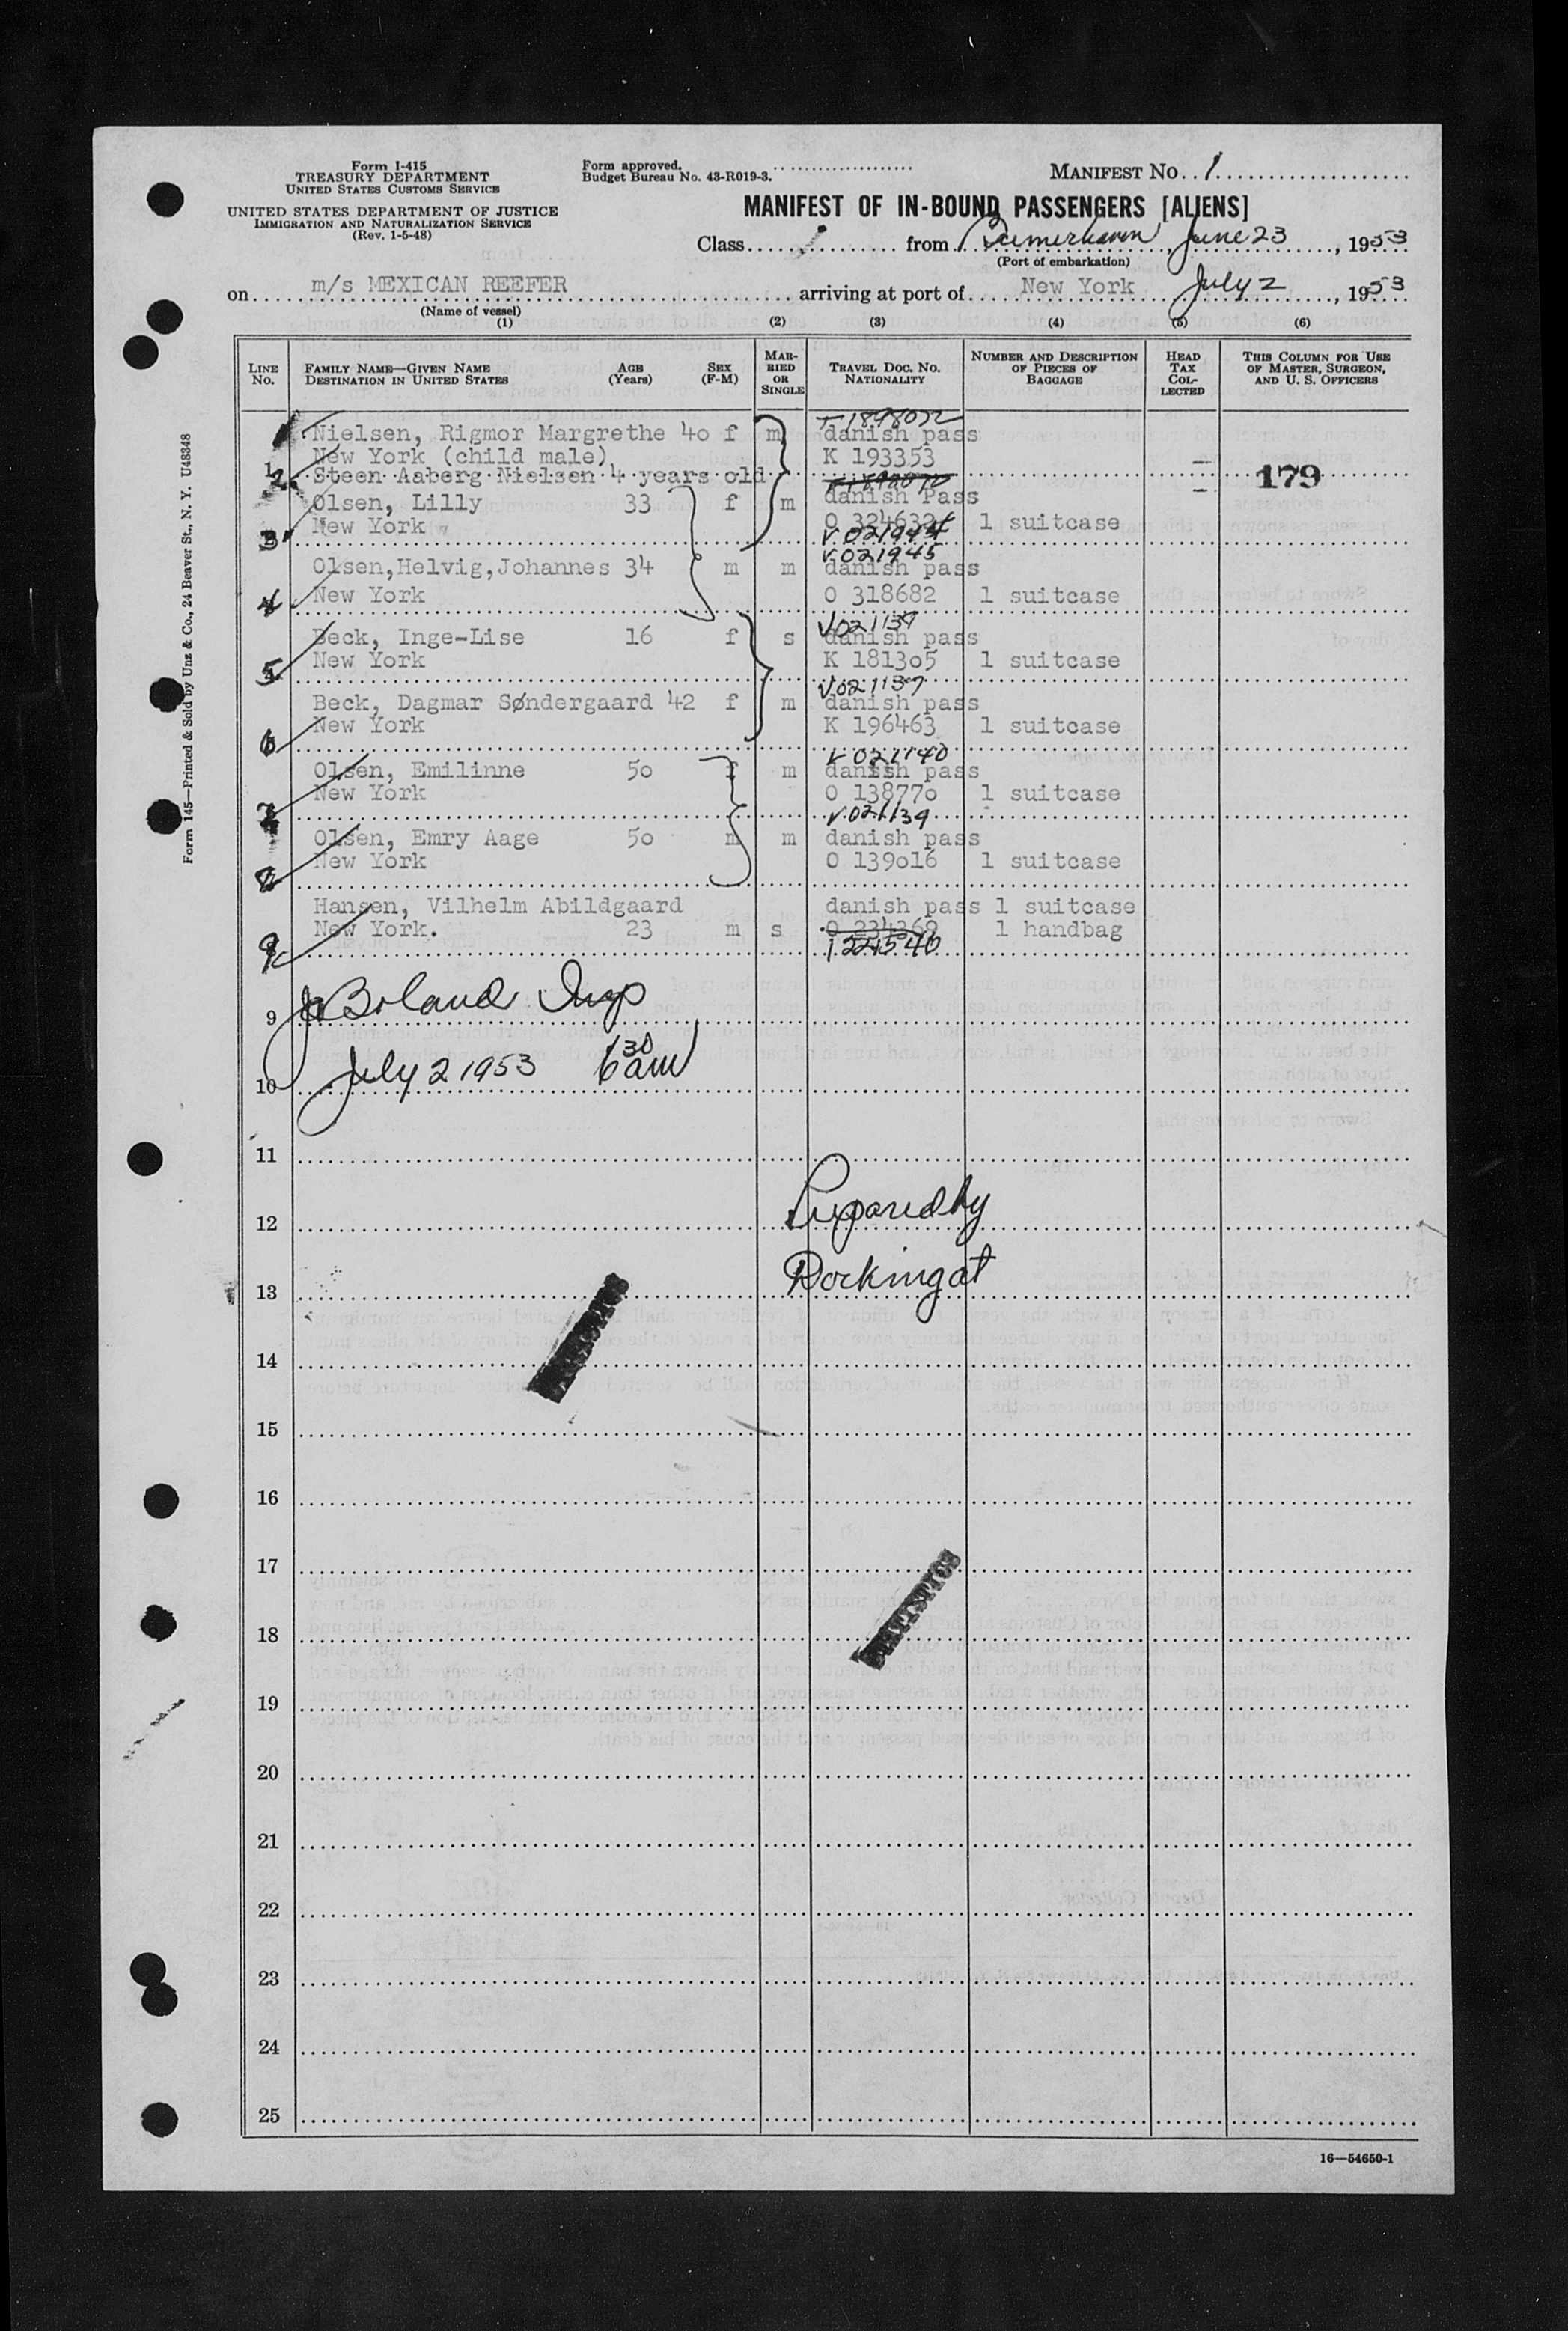 Form I-415
TREASURY DEPARTMENT
UNITED STATES CUSTOMS SERVICE
UNITED STATES DEPARTMENT OF JUSTICE
IMMIGRATION AND NATURALIZATION SERVICE
(Rev. 1-5-48)
Form approved.
Budget Bureau No. 43-R019-3.
MANIFEST NO. 1
MANIFEST OF IN-BOUND PASSENGERS [ALIENS]
Class from Bremerhaven, June 23, 1953
(Port of embarkation)
on m/s MEXICAN REEFER arriving at port of New York July 2, 1953
(Name of vessel)
(1) (2) (3) (4) (5) (6)
LINE No. FAMILY NAME—GIVEN NAME DESTINATION IN UNITED STATES AGE (Years) SEX (F-M) MARRIED OR SINGLE TRAVEL DOC. NO. NATIONALITY NUMBER AND DESCRIPTION OF PIECES OF BAGGAGE HEAD TAX COLLECTED THIS COLUMN FOR USE OF MASTER, SURGEON, AND U. S. OFFICERS
Nielsen, Rigmor Margrethe 4o f m danish pass
New York (child male) K 193353
1 2 Steen Aaberg Nielsen 4 years old 179
Olsen, Lilly 33 f m danish Pass
3 New York O 324632 1 suitcase
V 021944
V 021945
Olsen,Helvig,Johannes 34 m m danish pass
4 New York O 318682 1 suitcase
Beck, Inge-Lise 16 f s danish pass
5 New York K 1813o5 1 suitcase
V021137
Beck, Dagmar Søndergaard 42 f m danish pass
6 New York K 196463 1 suitcase
V 021140
Olsen, Emilinne 5o f m danish pass
New York O 13877o 1 suitcase
V 021139
Olsen, Emry Aage 5o m m danish pass
New York O 139o16 1 suitcase
Hansen, Vilhelm Abildgaard danish pass 1 suitcase
New York. 23 m s O 234369 1 handbag
9
Boland Insp
9
July 2 1953 6 30 am
10
11
Prepared by
12
Dockingat
13
14
15
16
17
STATISTICS
18
19
20
21
22
23
24
25
16—54650-1
Form 145—Printed & Sold by Unz & Co., 24 Beaver St., N. Y. U48348